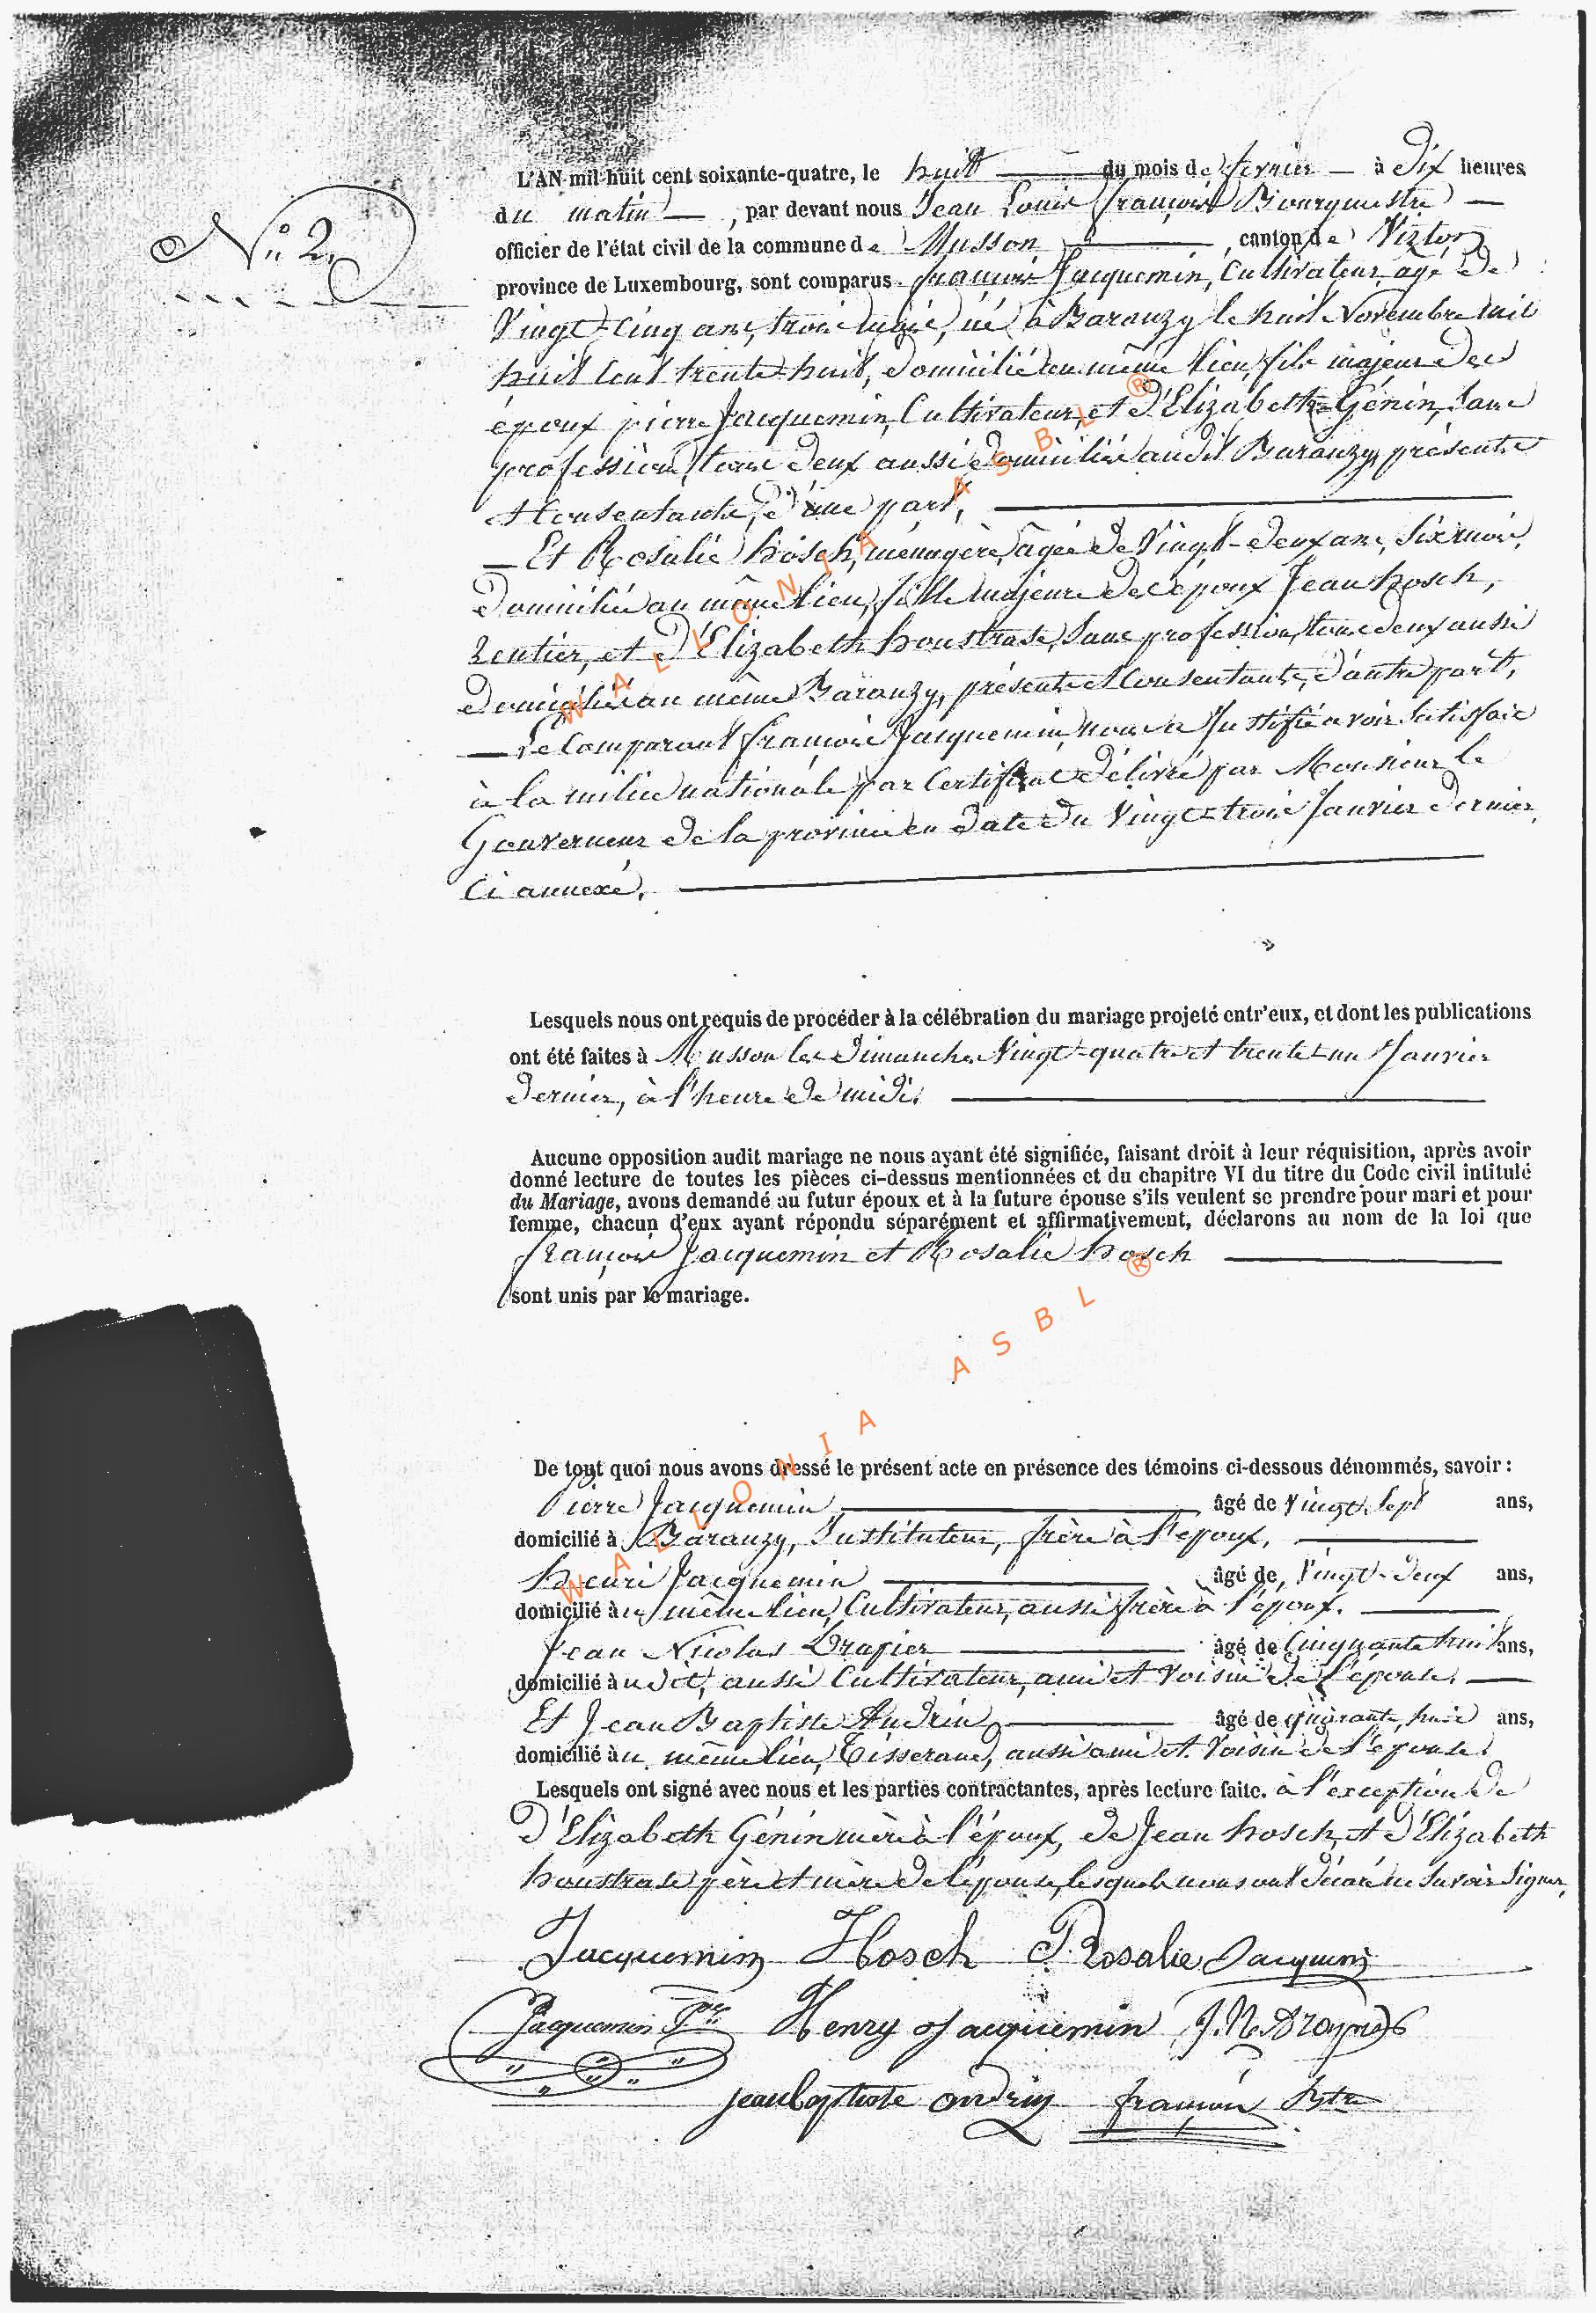 N.° 2.
L'AN mil huit cent soixante-quatre, le huit du mois de fevrier à Dix heures
du matin, par devant nous Jean Louis françois Bourguestre
officier de l'état civil de la commune de Musson, canton de Virton
province de Luxembourg, sont comparus françois Jacquemin, Cultivateur agé de
Vingt-cinq ans, trois mois, né à Baranzy le huit Novembre mil
huit cent trente-huit, domicilié au même lieu, fils majeur des
époux pierre Jacquemin, Cultivateur, et d'Elizabeth Génin, sans
profession, tous deux aussi domiciliés audit Baranzy, présents
et consentants, d'une part,
Et Rosalie hosch, ménagère, âgée de Vingt-deux ans, six mois,
domiciliée au même lieu, fille majeure des époux Jean hosch,
rentier, et d'Elizabeth houstrase, sans profession, tous deux aussi
domiciliés au même Baranzy, présents et consentants, d'autre part,
Le Comparant françois Jacquemin, nous a Justifié avoir satisfait
à la milice nationale par certificat délivré par Monsieur le
Gouverneur de la province en date du Vingt-trois Janvier dernier,
Ci annexé.
Lesquels nous ont requis de procéder à la célébration du mariage projeté entr'eux, et dont les publications
ont été faites à Musson les Dimanches Vingt-quatre et trente-un Janvier
dernier, à l'heure de midi.
Aucune opposition audit mariage ne nous ayant été signifiée, faisant droit à leur réquisition, après avoir
donné lecture de toutes les pièces ci-dessus mentionnées et du chapitre VI du titre du Code civil intitulé
du Mariage, avons demandé au futur époux et à la future épouse s'ils veulent se prendre pour mari et pour
femme, chacun d'eux ayant répondu séparément et affirmativement, déclarons au nom de la loi que
françois Jacquemin et Rosalie hosch
sont unis par le mariage.
De tout quoi nous avons dressé le présent acte en présence des témoins ci-dessous dénommés, savoir :
Pierre Jacquemin âgé de Vingt-sept ans,
domicilié à Baranzy, Instituteur, frère à l'epoux,
henri Jacquemin âgé de Vingt-deux ans,
domicilié au même lieu, Cultivateur, aussi frère à l'epoux.
Jean Nicolas Drapier âgé de Cinquante huit ans,
domicilié à udit, aussi Cultivateur, ami et voisin de l'épouse.
Et Jean Baptiste Andrin âgé de quarante huit ans,
domicilié au même lieu, Tisserand, aussi ami et voisin de l'epouse.
Lesquels ont signé avec nous et les parties contractantes, après lecture faite. à l'exception de
d'Elizabeth Génin mère à l'époux, de Jean hosch, et d'Elizabeth
houstrase père et mère de l'épouse, lesquels nous ont déclaré ne savoir signer,
Jacquemin Hosch Rosalie Jacquemin
Jacquemin Henry Jacquemin J. N. Drapier
jeanbaptiste andrin françois
WALLONIA ASBL ®
WALLONIA ASBL ®